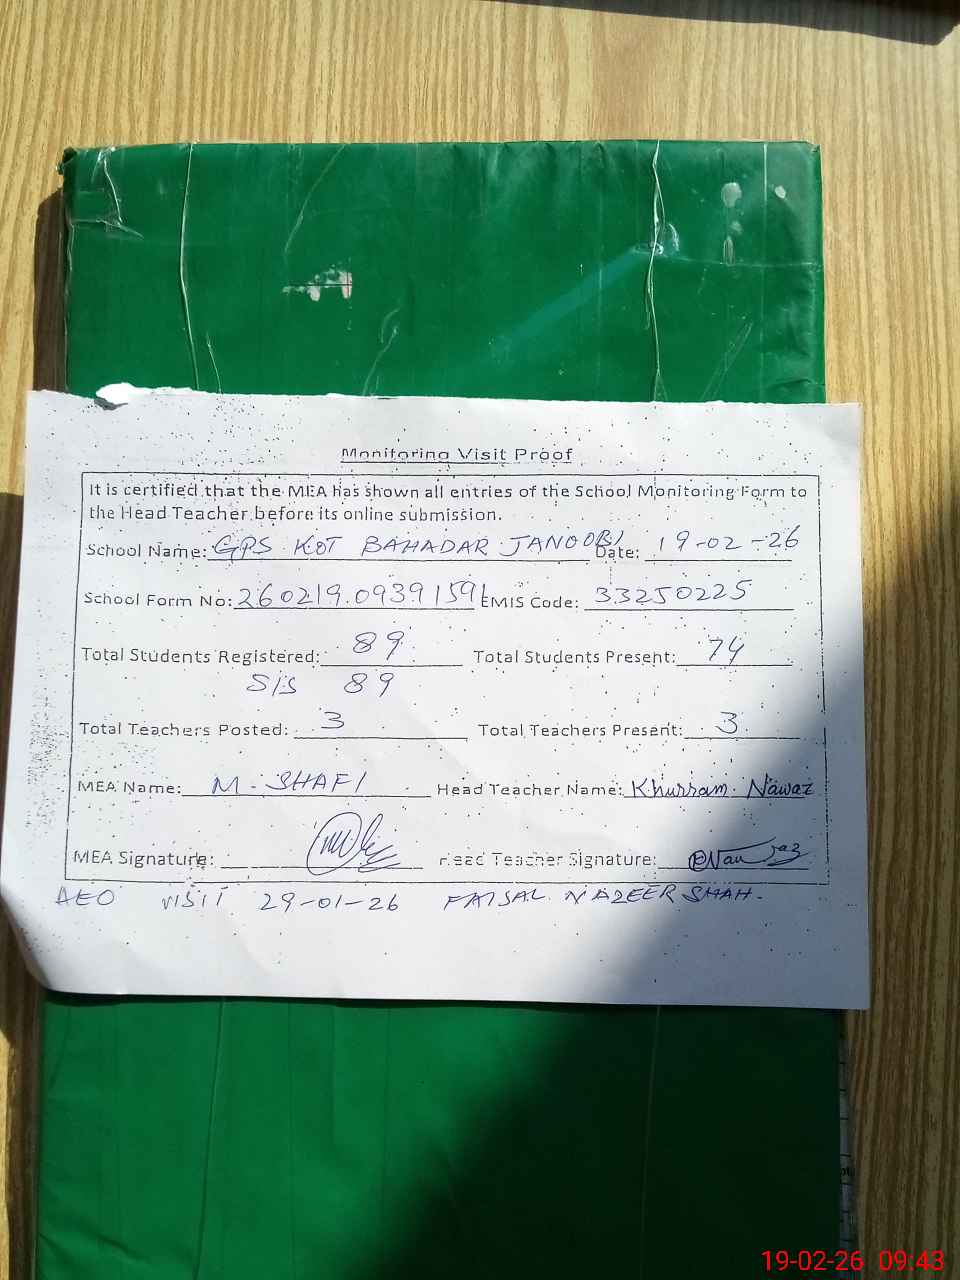 Monitoring Visit Proof
It is certified that the MEA has shown all entries of the School Monitoring Form to
the Head Teacher before its online submission.
School Name: GPS KOT BAHADAR JANOOBI Date: 19-02-26
School Form No: 260219.09391591 EMIS Code: 33250225
Total Students Registered: 89 Total Students Present: 74
SIS 89
Total Teachers Posted: 3 Total Teachers Present: 3
MEA Name: M. SHAFI Head Teacher Name: Khurram Nawaz
MEA Signature: Head Teacher Signature:
AEO VISIT 29-01-26 FAISAL NAZEER SHAH.
19-02-26 09:43